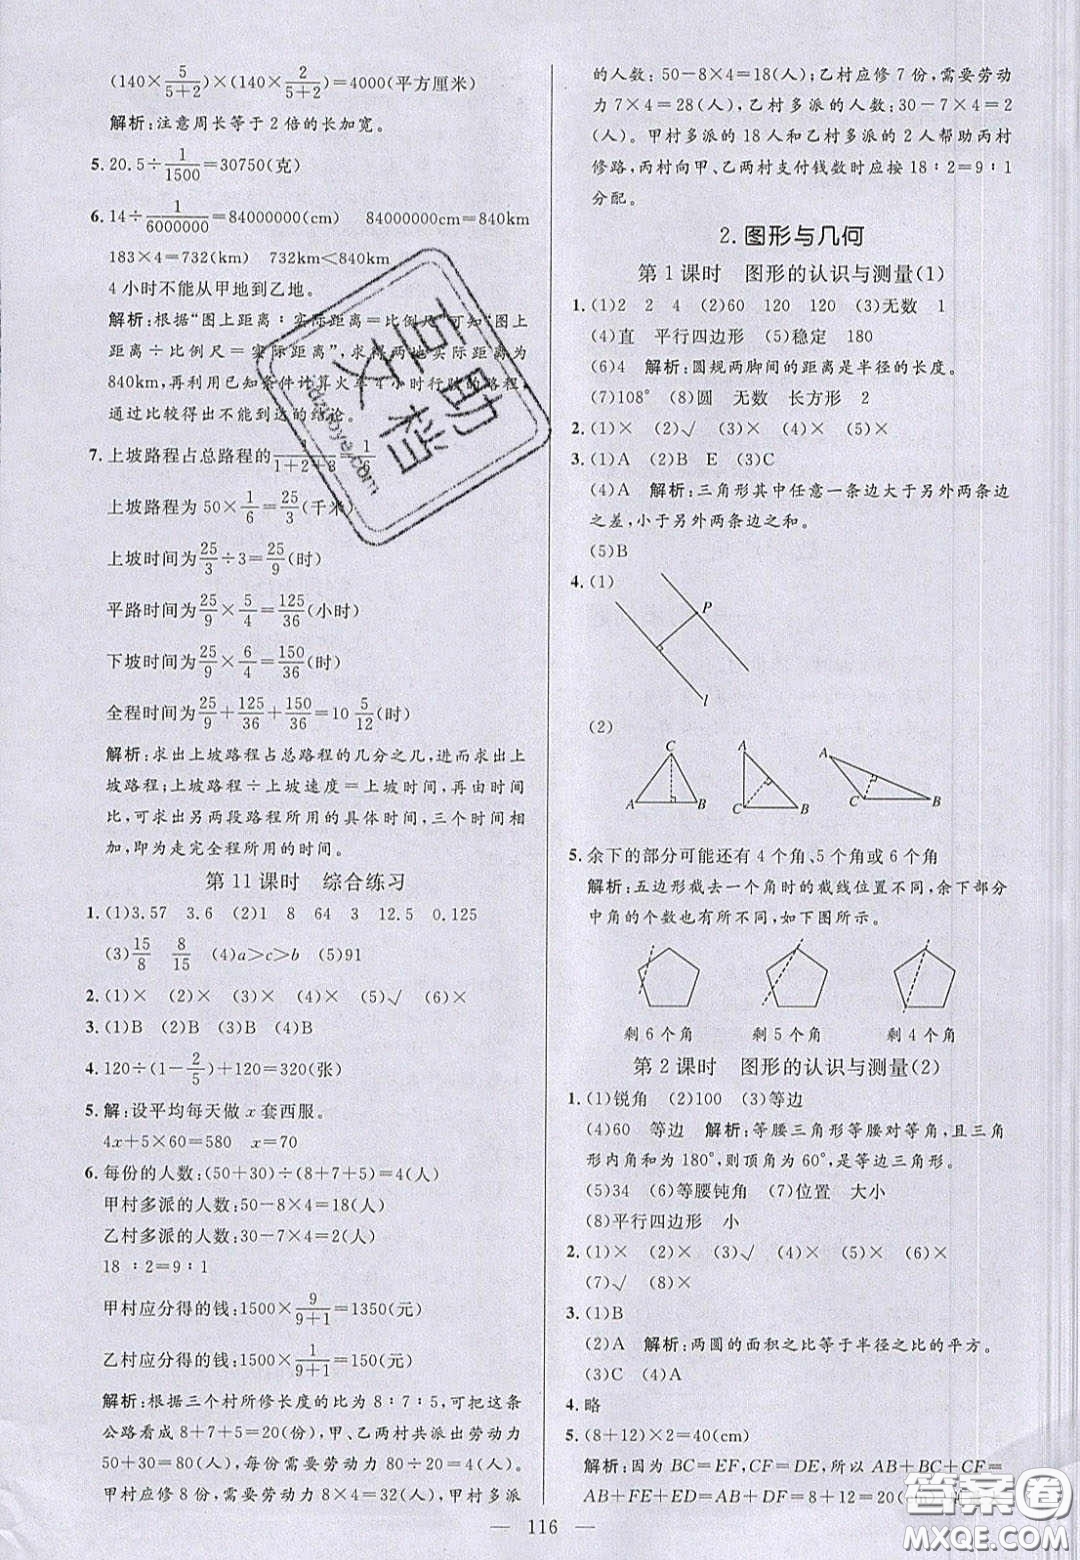 (140×5/(5+2))×(140×2/(5+2))=4000(平方厘米)
解析:注意周长等于 2 倍的长加宽。
5. 20.5÷1/1500=30750(克)
6. 14÷1/6000000=84000000(cm) 84000000cm=840km
183×4=732(km) 732km<840km
4 小时不能从甲地到乙地。
解析:根据“图上距离∶实际距离=比例尺”可知“图上
距离÷比例尺=实际距离”,求得两地实际距离为
840km,再利用已知条件计算火车 4 小时行驶的路程,
通过比较得出不能到达的结论。
7. 上坡路程占总路程的1/(1+2+3)=1/6
上坡路程为 50×1/6=25/3(千米)
上坡时间为25/3÷3=25/9(时)
平路时间为25/9×5/4=125/36(小时)
下坡时间为25/9×6/4=150/36(时)
全程时间为25/9+125/36+150/36=10 5/12(时)
解析:求出上坡路程占总路程的几分之几,进而求出上
坡路程;上坡路程÷上坡速度=上坡时间,再由时间
比,可求出另两段路程所用的具体时间,三个时间相
加,即为走完全程所用的时间。
第 11 课时 综合练习
1. (1)3.57 3.6 (2)1 8 64 3 12.5 0.125
(3)15/8 8/15 (4)a>c>b (5)91
2. (1)× (2)× (3)× (4)× (5)√ (6)×
3. (1)B (2)B (3)B (4)B
4. 120÷(1-2/5)+120=320(张)
5. 解:设平均每天做 x 套西服。
4x+5×60=580 x=70
6. 每份的人数:(50+30)÷(8+7+5)=4(人)
甲村多派的人数:50-8×4=18(人)
乙村多派的人数:30-7×4=2(人)
18∶2=9∶1
甲村应分得的钱:1500×9/(9+1)=1350(元)
乙村应分得的钱:1500×1/(9+1)=150(元)
解析:根据三个村所修长度的比为 8∶7∶5,可把这条
公路看成 8+7+5=20(份),甲、乙两村共派出劳动力
50+30=80(人),每份需要劳动力 80÷20=4(人)。
甲村应修 8 份,需要劳动力 8×4=32(人),甲村多派
的人数:50-8×4=18(人);乙村应修 7 份,需要劳动
力 7×4=28(人),乙村多派的人数:30-7×4=2
(人)。甲村多派的 18 人和乙村多派的 2 人帮助丙村
修路,丙村向甲、乙两村支付钱数时应按 18∶2=9∶1
分配。
2. 图形与几何
第 1 课时 图形的认识与测量(1)
1. (1)2 2 4 (2)60 120 120 (3)无数 1
(4)直 平行四边形 (5)稳定 180
(6)4 解析:圆规两脚间的距离是半径的长度。
(7)108° (8)圆 无数 长方形 2
2. (1)× (2)√ (3)× (4)× (5)×
3. (1)A (2)B E (3)C
(4)A 解析:三角形其中任意一条边大于另外两条边
之差,小于另外两条边之和。
(5)B
4. (1)
P
l
(2)
C A B
A C B
A C B
5. 余下的部分可能还有 4 个角、5 个角或 6 个角
解析:五边形截去一个角时的截线位置不同,余下部分
中角的个数也有所不同,如下图所示。
剩 6 个角 剩 5 个角 剩 4 个角
第 2 课时 图形的认识与测量(2)
1. (1)锐角 (2)100 (3)等边
(4)60 等边 解析:等腰三角形等腰对等角,且三角
形内角和为 180°,则顶角为 60°,是等边三角形。
(5)34 (6)等腰钝角 (7)位置 大小
(8)平行四边形 小
2. (1)× (2)× (3)√ (4)× (5)× (6)×
(7)√ (8)×
3. (1)B
(2)A 解析:两圆的面积之比等于半径之比的平方。
(3)C (4)A
4. 略
5. (8+12)×2=40(cm)
解析:因为 BC=EF,CF=DE,所以 AB+BC+CF=
AB+FE+ED=AB+AD=8+12=20(
— 116 —
互助文档
答案圈
MXQE.COM